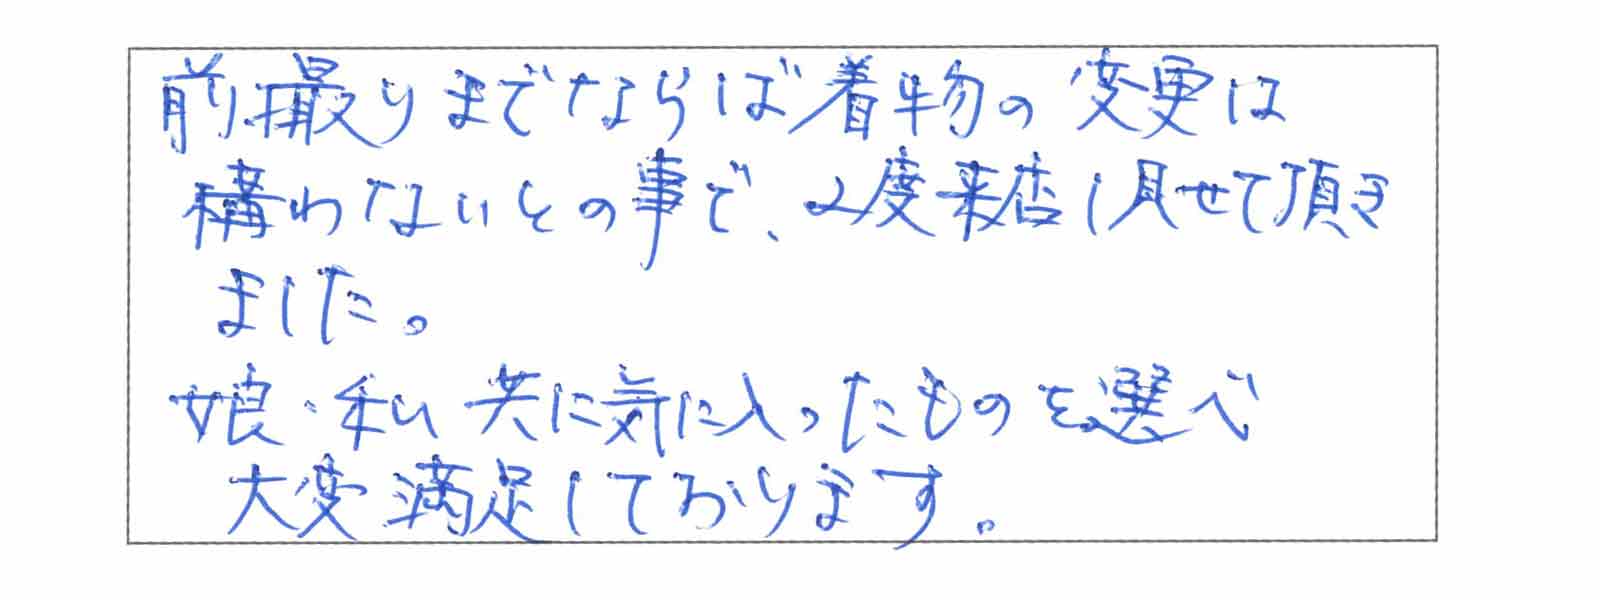 前撮りまでならば着物の変更は
構わないとの事で、2度来店し見せて頂き
ました。
娘・私共に気に入ったものを選べ
大変満足しております。